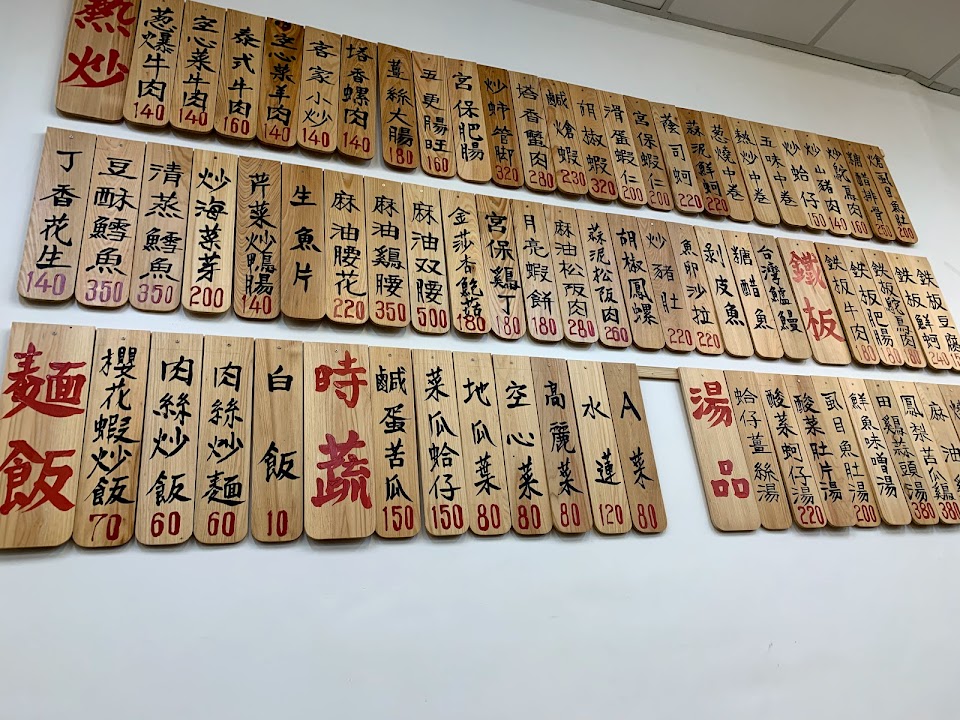 熱炒
葱爆牛肉 140
空心菜牛肉 140
泰式牛肉 160
空心菜羊肉 140
客家小炒 140
塔香螺肉 140
薑絲大腸 180
五更腸旺 160
宮保肥腸
炒蟳管脚 320
塔香蟹肉 280
鹹焓蝦 230
胡椒蝦 320
滑蛋蝦仁 200
宮保蝦仁 200
蔭司蚵
蒜泥鮮蚵 220
葱燒中卷
熱炒中卷
五味中卷
炒蛤仔
炒山豬肉
糖醋排骨
丁香花生 140
豆酥鱈魚 350
清蒸鱈魚 350
炒海菜芽 200
芹菜炒鴨腸 140
生魚片
麻油腰花 220
麻油鷄腰 350
麻油双腰 500
金莎杏鮑菇 180
宮保鷄丁 180
月亮蝦餅 180
麻油松阪肉 280
蒜泥松阪肉 260
胡椒鳳螺
炒豬肚 220
魚卵沙拉 220
剥皮魚
糖醋魚
台灣鱸鰻
鐵板
鉄板牛肉
鉄板肥腸
鉄板鮮蚵
鉄板豆腐
麵飯
櫻花蝦炒飯 70
肉絲炒飯 60
肉絲炒麵 60
白飯 10
時蔬
鹹蛋苦瓜 150
菜瓜蛤仔 150
地瓜葉 80
空心菜 80
高麗菜 80
水蓮 120
A菜 80
湯品
蛤仔薑絲湯
酸菜蚵仔湯 220
酸菜肚片湯
虱目魚肚湯 200
鮮魚味噌湯
田鷄蒜頭湯
鳳梨苦瓜鷄 380